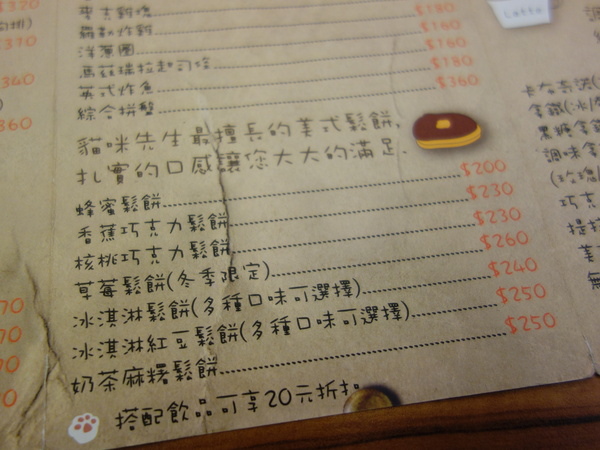 $320
$310
340
)
360
70
70
70
0
麥克雞塊
羅勒炸雞 $180
洋蔥圈 $160
馬茲瑞拉起司條 $160
英式炸魚 $180
綜合拼盤 $360
貓咪先生最擅長的美式鬆餅,
扎實的口感讓您大大的滿足.
蜂蜜鬆餅 $200
香蕉巧克力鬆餅 $230
核桃巧克力鬆餅 $230
草莓鬆餅(冬季限定) $260
冰淇淋鬆餅(多種口味可選擇) $240
冰淇淋紅豆鬆餅(多種口味可選擇) $250
奶茶麻糬鬆餅 $250
搭配飲品可享20元折扣。
Latte
卡布奇諾
拿鐵(冰/
黑糖拿鐵
調味拿
(玫瑰/
巧克
提拉
美
無